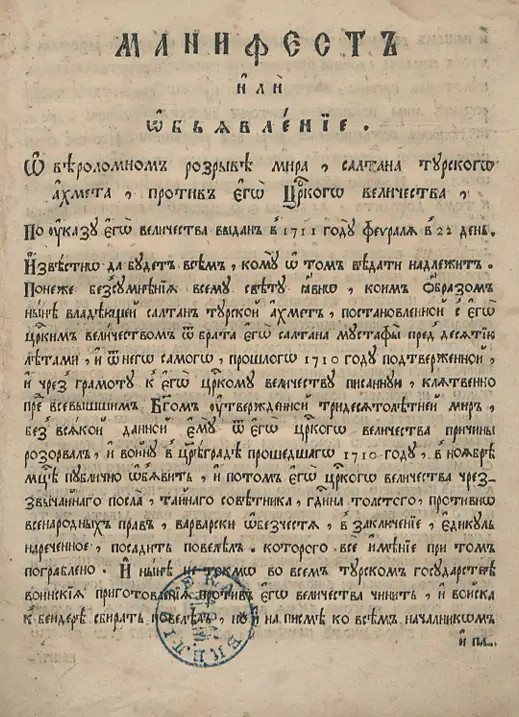 МАНИФЕСТЪ
И҆лѝ
Ѡ҆бьѧвле́нїе.
Ѡ҆ вѣроломномъ розрывѣ мира, салтана турскогѡ
ахмета, противъ є҆гѡ̀ Цр҃кого величества,
По ᲂу҆казу є҆гѡ̀ величества выданъ в̾ 1711 году феураля в̾ 22 день.
И҆звѣстно да будетъ всѣмъ, кому ѡ҆ том̾ вѣдати надлежитъ.
Понеже безсумнѣнїя всему свѣту ꙗ҆вно, коим̾ ѻ҆бразомъ
нынѣ владѣющей салтанъ турской а҆хметъ, постановленной с̾ є҆гѡ̀
цр҃кимъ величествомъ ѿ брата є҆гѡ̀ салтана мустафы пред̾ десятїю
лѣтами, и҆ ѿнего самого, прошлого 1710 году подтверженной,
и҆ чрез̾ грамоту к̾ є҆гѡ̀ цр҃кому величеству писанную, клятвенно
пре всевышшимъ Бг҃омъ ᲂу҆твержденной тридесятолѣтней миръ,
без̾ всякой данной є҆му ѿ є҆гѡ̀ цр҃кого величества причины
розорвалъ, и҆ войну в̾ цр҃ѣградѣ прошедшаго 1710 году, в̾ ноябрѣ
мц҃ѣ публично ѡ҆б̾явить, и҆ потомъ є҆гѡ̀ цр҃кого величества чрез-
звычайнаго посла, тайнаго совѣтника, гдⷭ҇ина толстого, противно
всенародныхъ правъ, варварски ѡ҆безчестя, в̾ заключенїе, є҆дикуль
нареченное, посадить повелѣл̾. которого всѐ и҆мѣнїе при томъ
пограблено. И҆ нынѣ не токмо во всемъ турском̾ государствѣ
воинскїя приготовленїя противъ є҆гѡ̀ величества чинить, и҆ войска
к̾ бендерѣ сбирать повелѣлъ, но и҆ на писмѣ ко всѣмъ началникомъ
и҆ па...